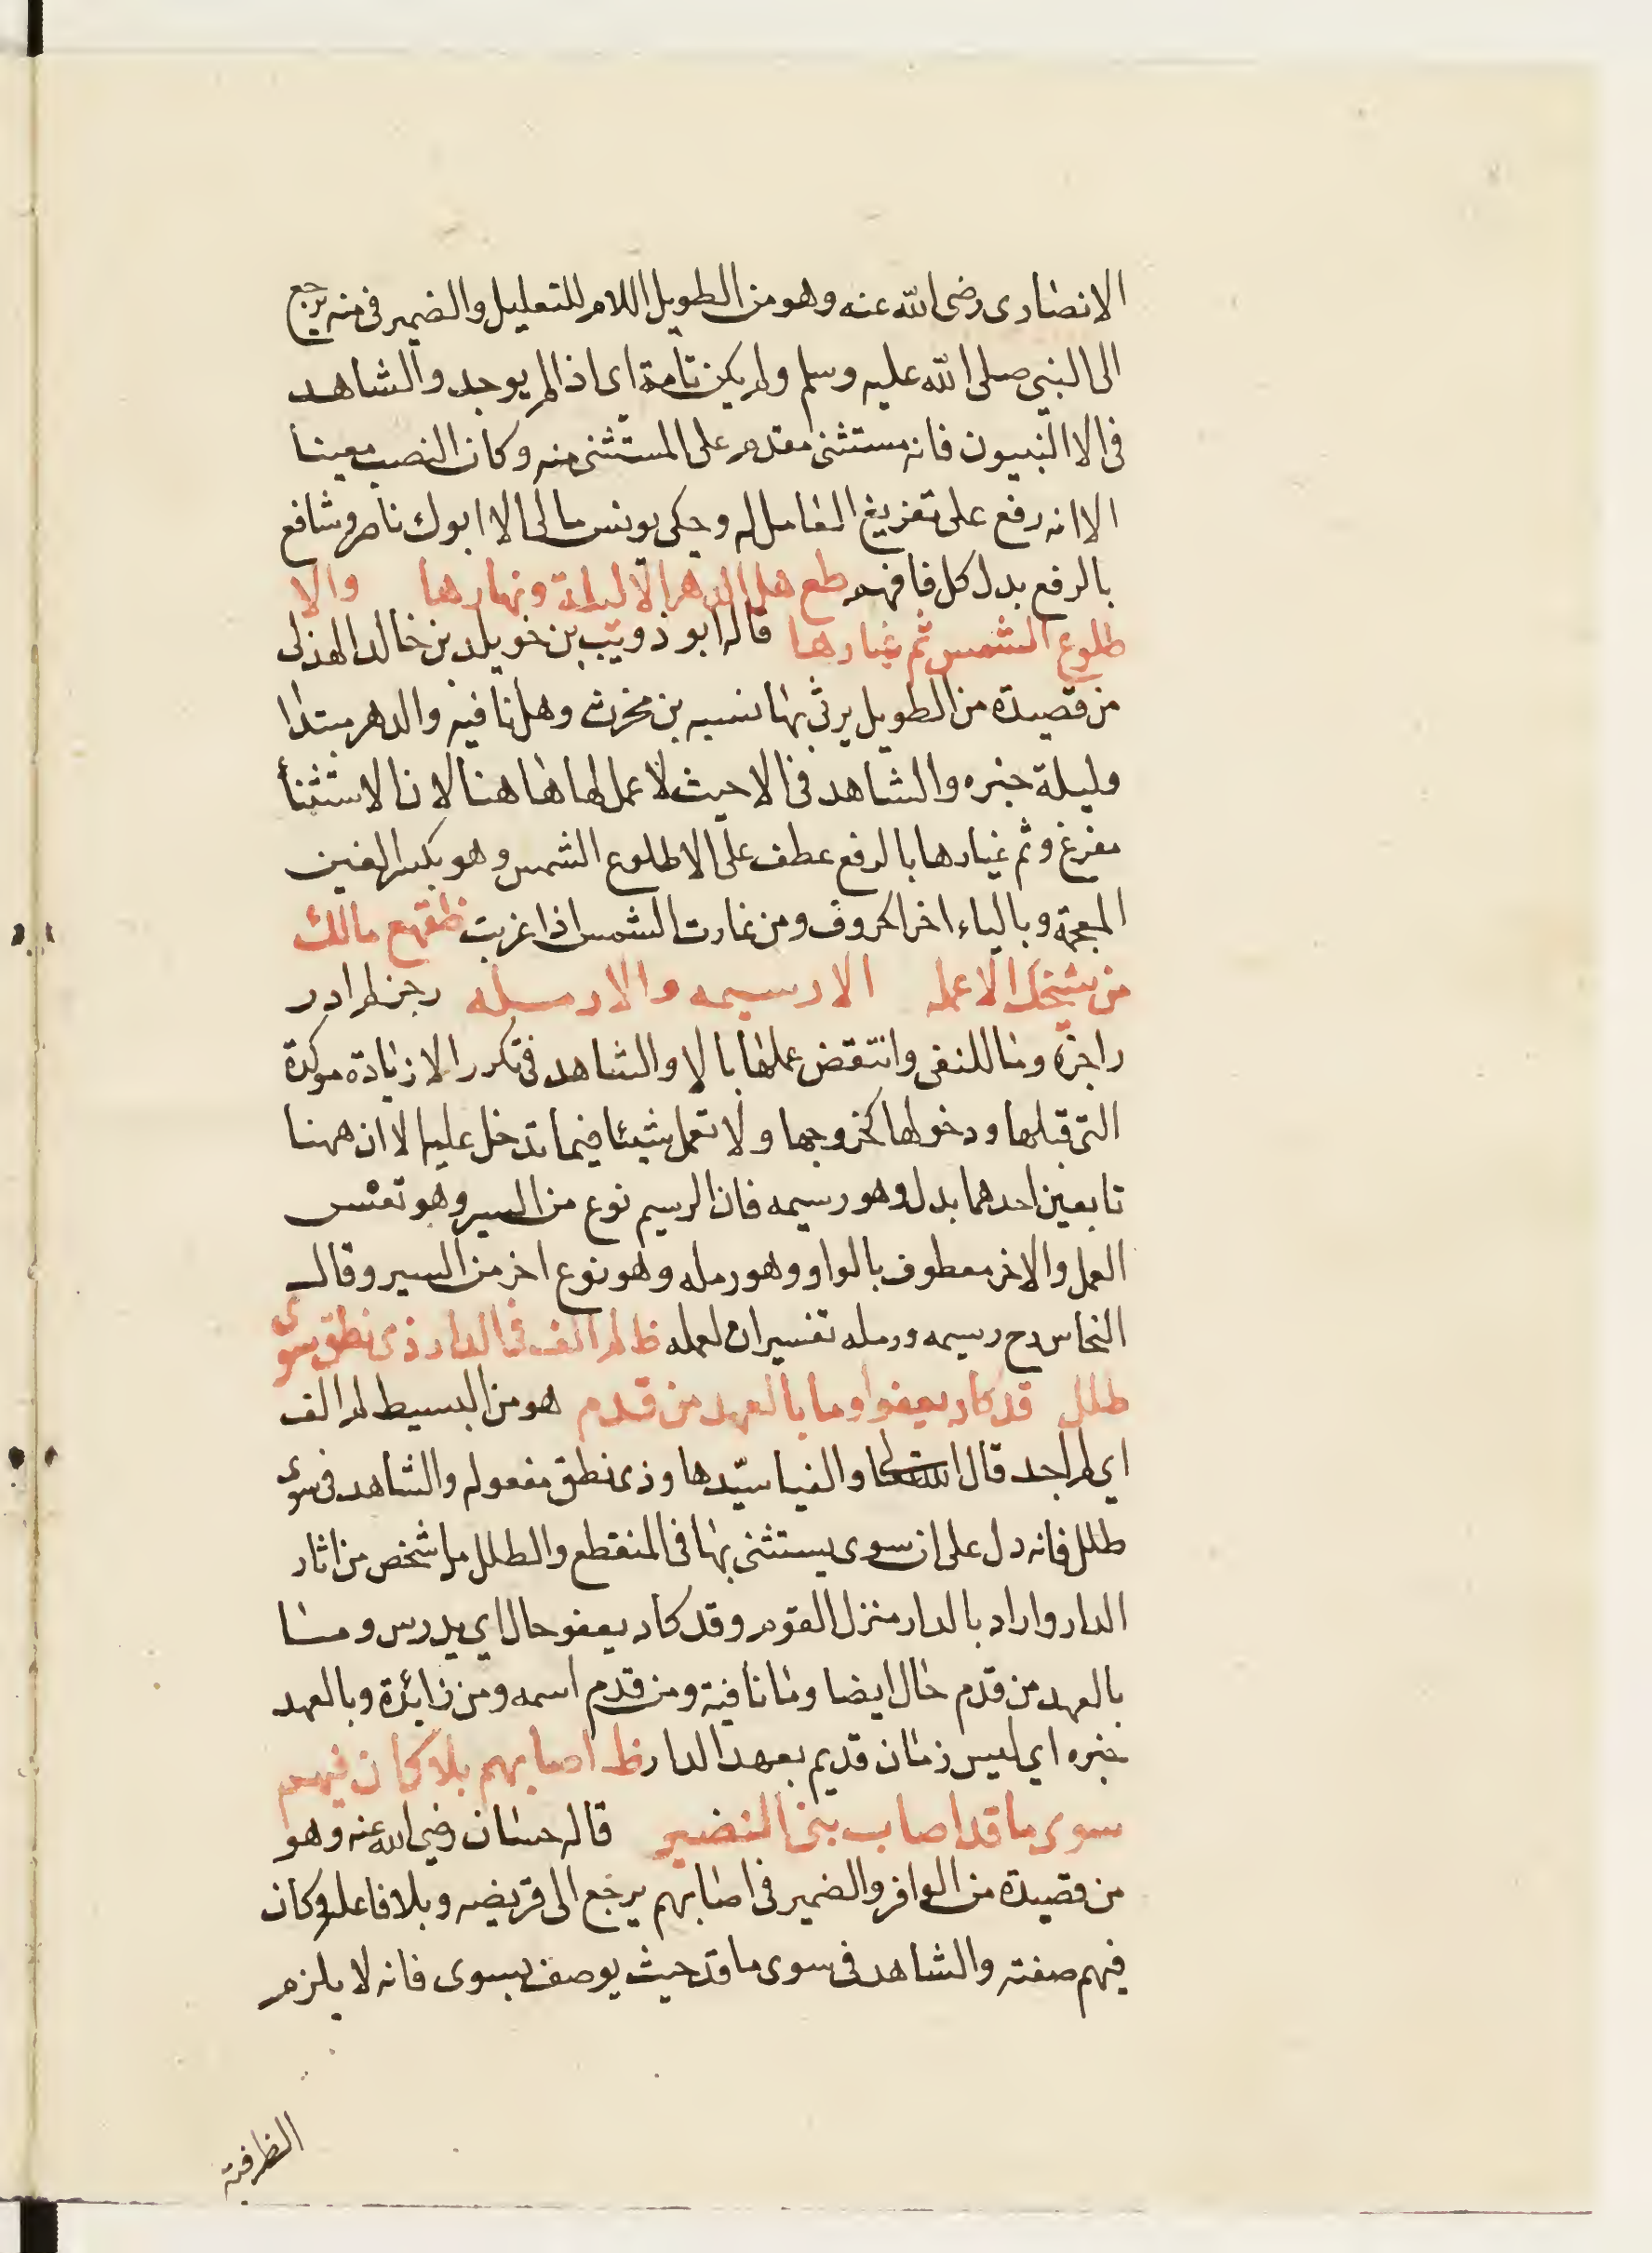 الانصارى رضى الله عنه وهو من الطويل اللام للتعليل والضمير فى منه يرجع
الى النبى صلى الله عليه وسلم ولم يكن تامة اى اذا لم يوجد والشاهد
فى الا النبيون فانه مستثنى مقدم على المستثنى منه وكان النصب معينا
الا انه رفع على تفريغ العامل له وحكى يونس مالى الا ابوك ناصر وشافع
بالرفع بدل كل فافهم طع هل الدهر الا ليلة ونهارها والا
طلوع الشمس ثم غيارها قاله ابو ذويب بن خويلد بن خالد الهذلى
من قصيدة من الطويل يرثى بها نسيبه بن محرث وهل نافيه والدهر مبتدا
وليلة خبره والشاهد فى الا حيث لا عمل لها هاهنا لان الاستثنأ
مفرغ وثم غيارها بالرفع عطف على الا طلوع الشمس وهو بكسر الغين
المعجمة وبالياء اخر الحروف ومن غارت الشمس اذا غربت ظقهع مالك
من شيخك الا عمله الا رسيمه والا رمله رجز لم ادر
راجزه وما للنفى وانتقض عملها بالا والشاهد فى تكرر الا زيادة موكدة
التى قبلها ودخولها كخروجها ولا تعمل شيئا فيما تدخل عليه الا ان ههنا
تابعين احدهما بدل وهو رسيمه فان الرسيم نوع من السير وهو تفس
العمل والاخر معطوف بالواو وهو رمله وهو نوع اخر من السير وقال
النحاس رح رسيمه ورمله تفسيران لعمله ظ لم الف فى الدار ذى نطق سوى
طلل قد كاد يعفوا وما بالعهد من قدم هو من البسيط لم الف
اي لم اجد قال الله تعالى والفيا سيّدها وذى نطق مفعوله والشاهد فى سوى
طلل فانه دل على ان سوى يستثنى بها فى المنقطع والطلل ما شخص من اثار
الدار واراد بالدار منزل القوم وقد كاد يعفو حال اي يدرس وما
بالعهد من قدم حال ايضا وما نافية ومن قدم اسمه ومن زائدة وبالعهد
خبره اي ليس زمان قديم بعهد الدار ظ اصابهم بلا كان فيهم
سوى ما قد اصاب بنى النضير قاله حسان رضى الله عنه وهو
من قصيدة من الوافر والضمير فى اصابهم يرجع الى قريضه وبلا فاعله وكان
فيهم صفته والشاهد فى سوى ما قد حيث يوصف بسوى فانه لا يلزم
الظرفية